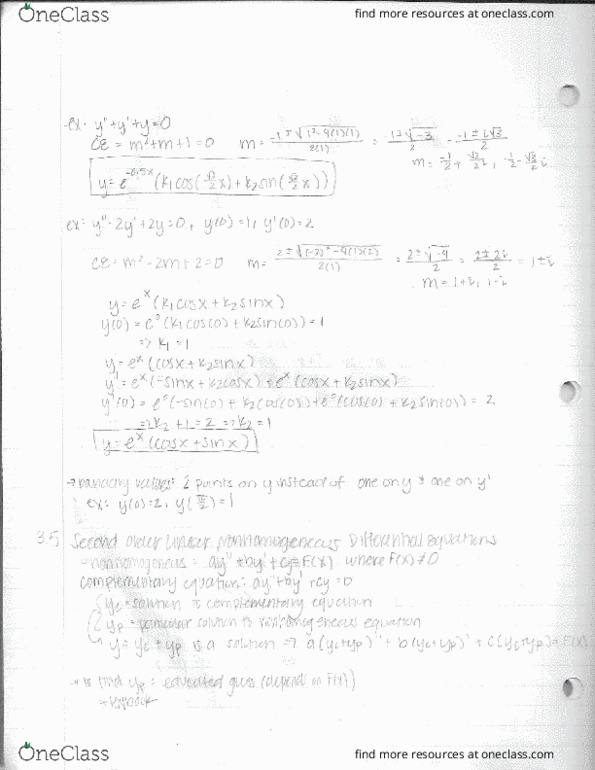 OneClass
find more resources at oneclass.com
ex: y''+y'+y=0
CE = m²+m+1=0 m= -1±√(1²-4(1)(1)) / 2(1) = -1±√-3 / 2 = -1±i√3 / 2
m= -1/2 + √3/2 i, -1/2 - √3/2 i
y=e^-0.5x (k₁cos(√3/2 x)+k₂sin(√3/2 x))
ex: y''-2y'+2y=0, y(0)=1, y'(0)=2
CE = m²-2m+2=0 m= 2±√((-2)²-4(1)(2)) / 2(1) = 2±√-4 / 2 = 2±2i / 2 = 1±i
m=1+i, 1-i
y=e^x(k₁cosx+k₂sinx)
y(0)=e⁰(k₁cos(0)+k₂sin(0))=1
=> k₁=1
y=e^x(cosx+k₂sinx)
y'=e^x(-sinx+k₂cosx)+e^x(cosx+k₂sinx)
y'(0)=e⁰(-sin(0)+k₂cos(0))+e⁰(cos(0)+k₂sin(0))=2
=>k₂+1=2=>k₂=1
y=e^x(cosx+sinx)
→ boundary values: 2 points on y instead of one on y & one on y'
ex: y(0)=2, y(π/2)=1
3.5 Second order Linear Nonhomogeneous Differential Equations
-nonhomogeneous= ay''+by'+cy=F(x) where F(x)≠0
complementary equation: ay''+by'+cy=0
yc=solution to complementary equation
yp=particular solution to nonhomogeneous equation
y=yc+yp is a solution => a(yc+yp)''+b(yc+yp)'+c(yc+yp)=F(x)
→ to find yp= educated guess (depend on F(x))
OneClass
find more resources at oneclass.com